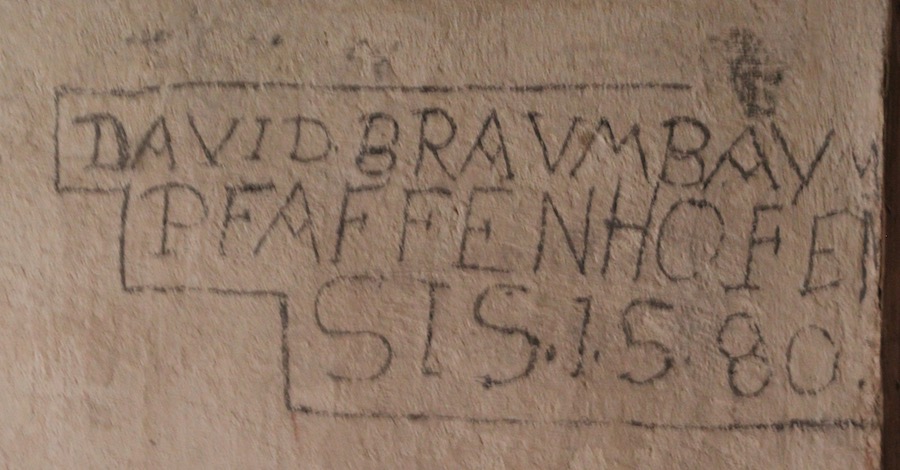 DAVID BRAVMBAVM
PFAFFENHOFEN
SIS.1.5.80.